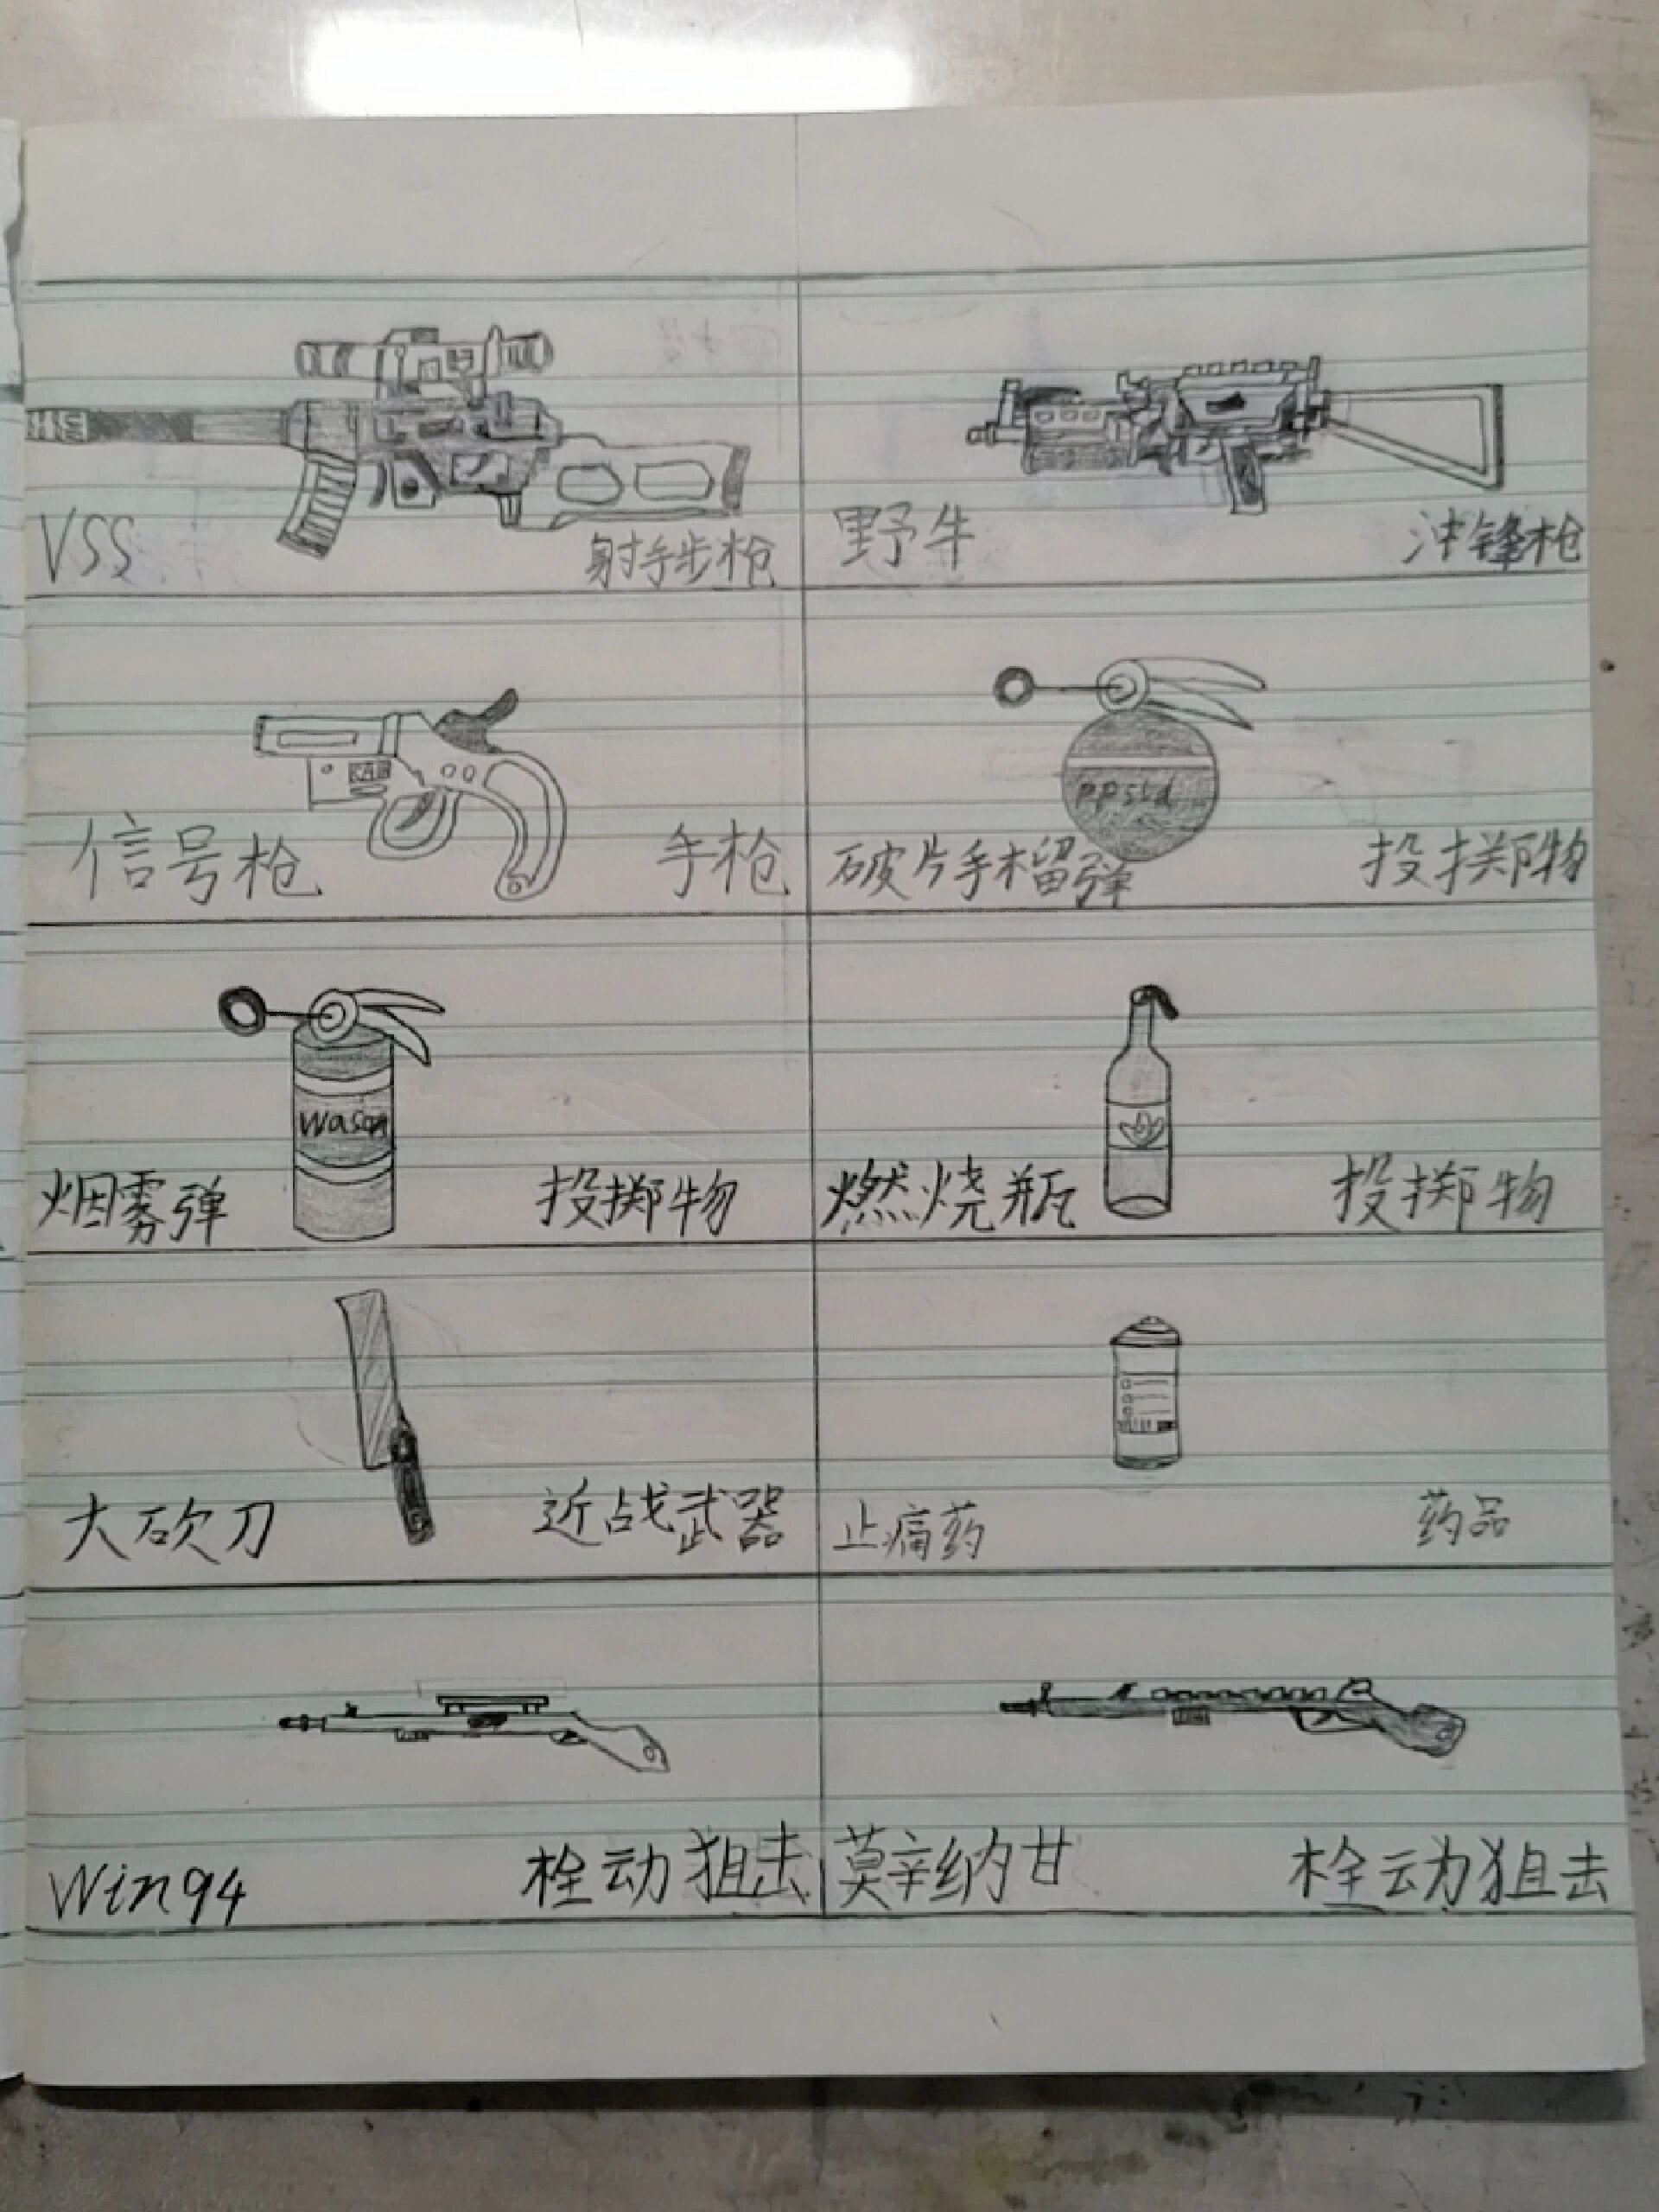 VSS 射手步枪
野牛 冲锋枪
信号枪 手枪
破片手榴弹 投掷物
ppssd
Wason
烟雾弹 投掷物
燃烧瓶 投掷物
大砍刀 近战武器
止痛药 药品
Win94 栓动狙击
莫辛纳甘 栓动狙击